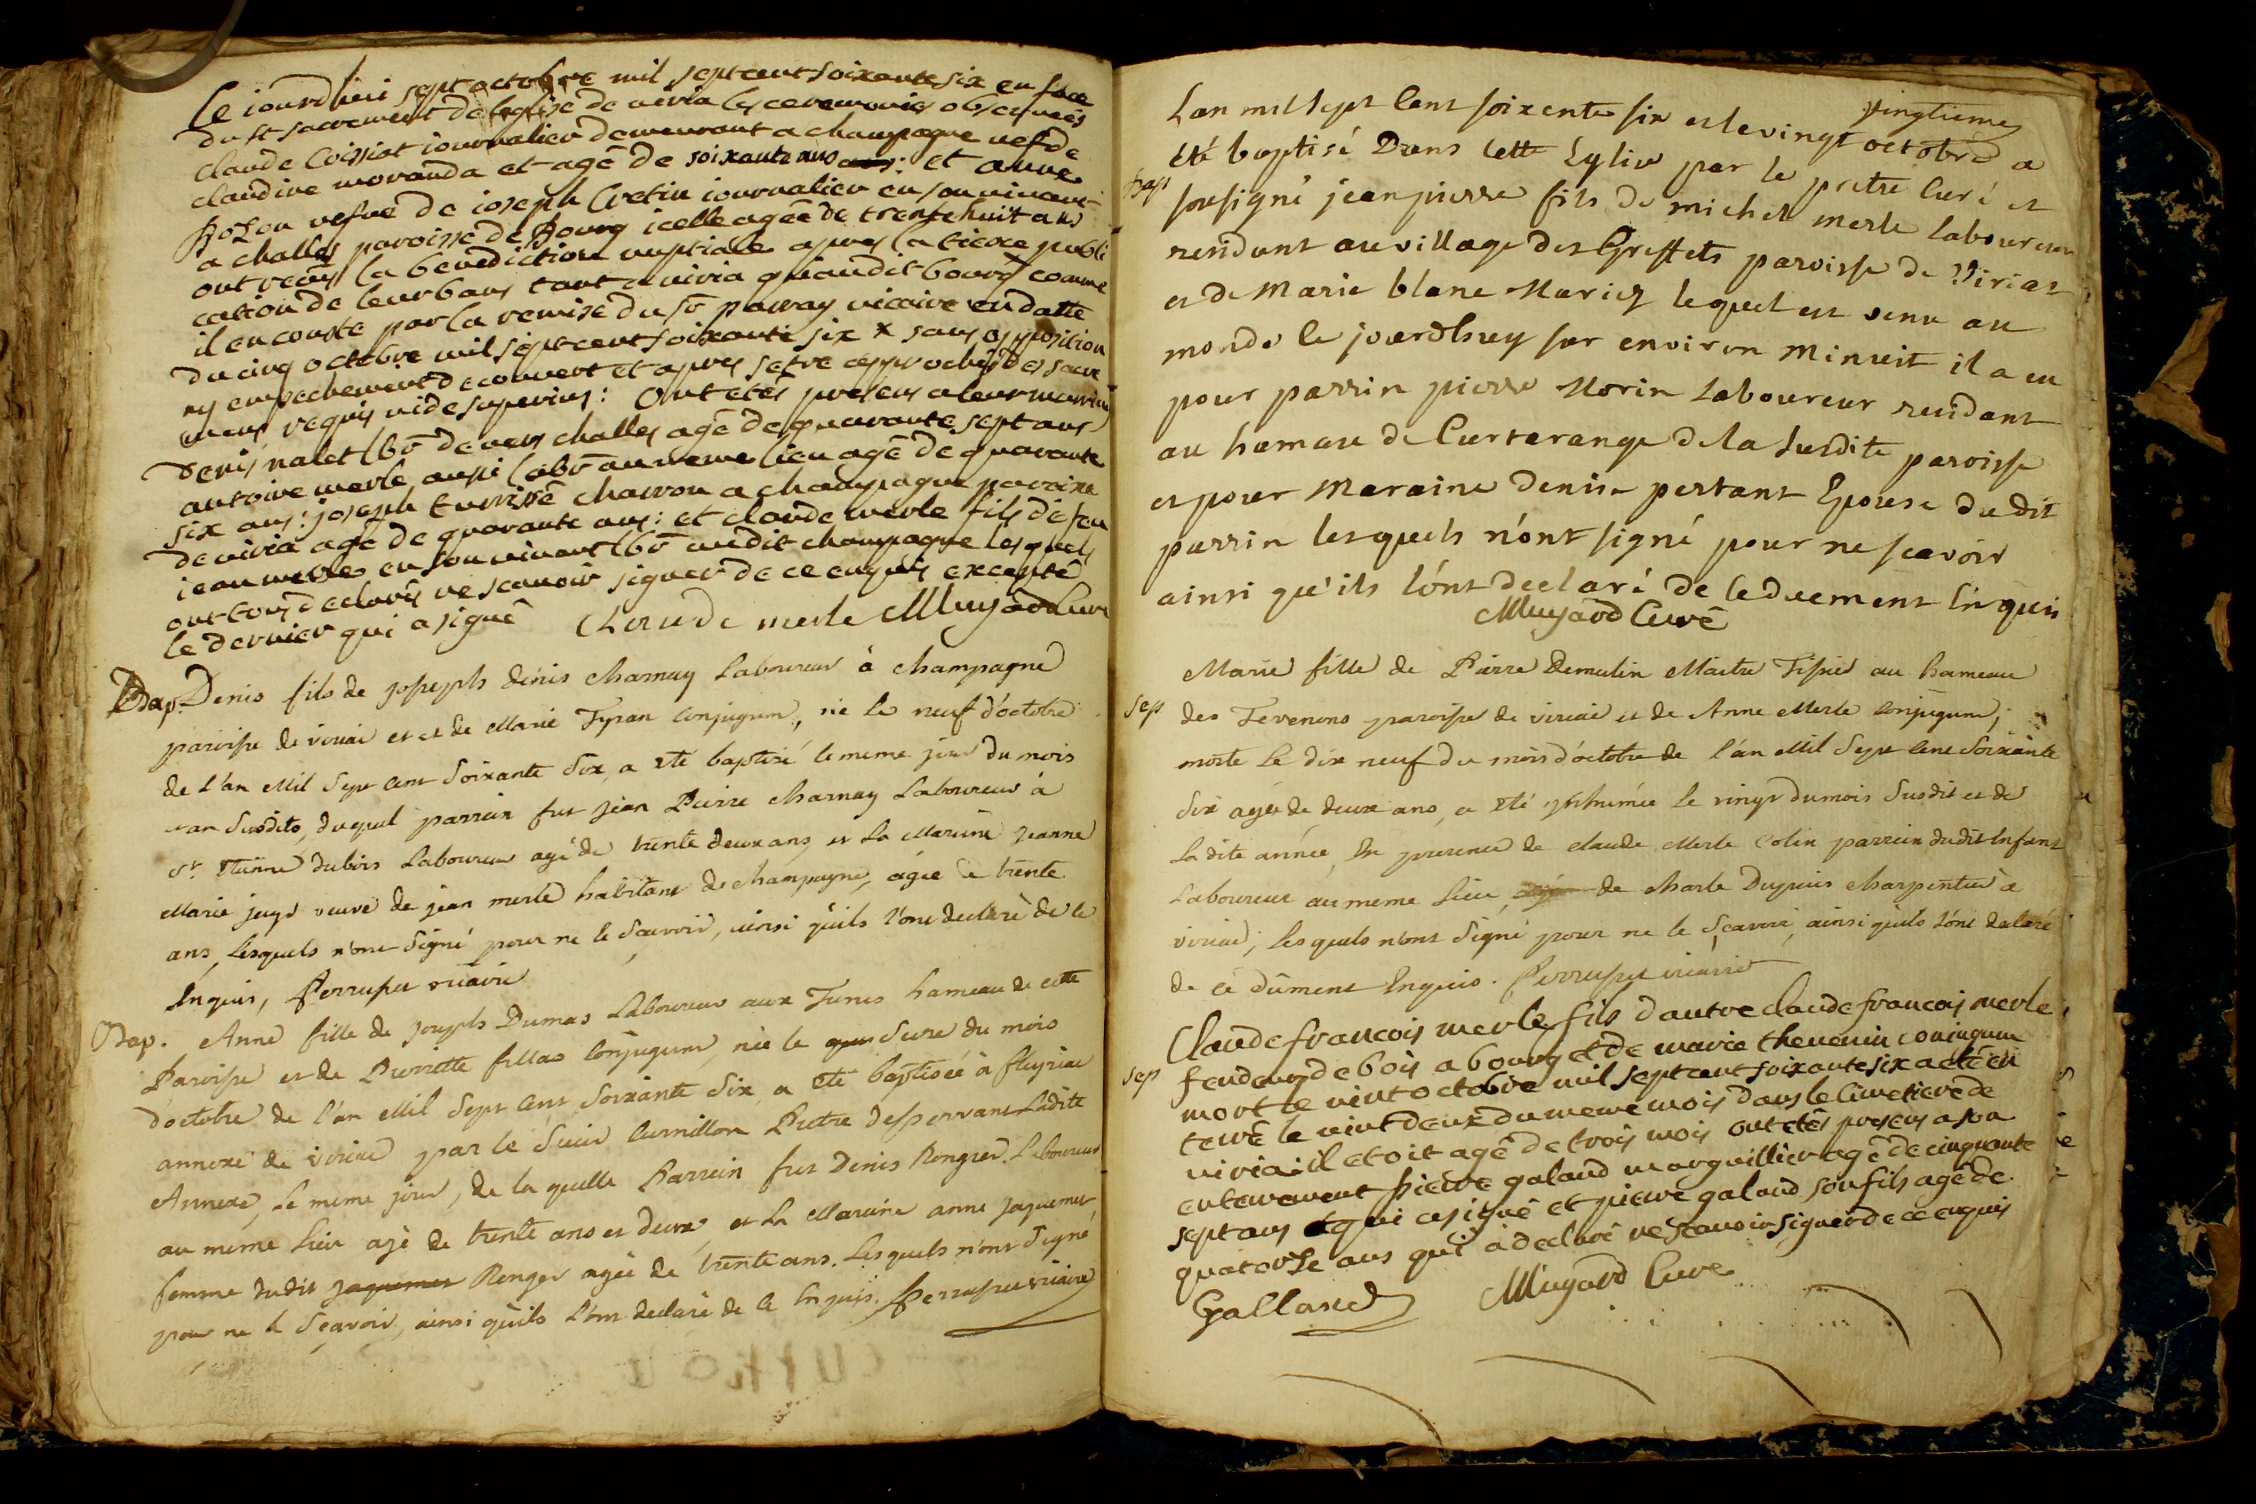 le iourdhui sept octobre mil sept cent soixante six en face
du st sacrement de leglise de viria les ceremonies observeés
claude Coissiat iournalier demeurant a champagne vefde
claudine moranda et agé de soixante ans et anne
Bozon vefve de ioseph Cretin iournalier en son vivant
a challes paroisse de Bourg icelle ageé de trente huit ans
ont recus la benediction nuptiale apres la tierce publi
cation de leurs bans tant a viria qu'audit bourg comme
il en conste par la remise du sr parray vicaire en datte
du cinq octobre mil sept cent soixante six x sans opposition
ny empechement decouvert et apres setre approchés des sacre
mens requis vide superius : ont etés presens a leur mariage
denis nalet lbr de vers challes agé de quarante sept ans
antoine merle aussi labr au meme lieu agé de quarante
six ans : joseph charron a champagne paroisse
de viria agé de quarante ans : et claude merle fils de feu
iean merle en son vivant lbr audit champagne lesquels
ont tous declarés ne scavoir signer de ce enquis excepté
le dernier qui a signé Claude merle Muyard Curé
Bap. Denis fils de joseph denis charnay Laboureur à champagne
paroisse de viriat et et de Marie Tyran conjugum, né le neuf d'octobre
de l'an Mil Sept Cent Soixante Six, a été baptisé le meme jour du mois
et an Susdits, duquel parrain fut jean Pierre charnay Laboureur à
St. Etienne dubois Laboureur agé de trente deux ans, et La Maraine jeanne
Marie veuve de jean merle habitant de champagne, agée de trente
ans, lesquels n'ont Signé pour ne le Scavoir, ainsi qu'ils l'ont declaré de ce
Enquis, Perruset vicaire
Bap. Anne fille de joseph Dumas Laboureur aux hameau de cette
Paroisse et de Pierrette fillas Conjugum, née le Seize du mois
d'octobre de l'an Mil Sept Cent Soixante Six a été baptiséé à fleyriat
annexe de viriat par le Sieur Curnillon Pretre desservant Ladite
Annexe, le meme jour, de laquelle Parrain fut Denis Ronger Laboureur
au meme Lieu agé de trente ans et deux, et La Maraine anne jaquemet,
femme dudit jaquemet Ronger agée de trente ans. Lesquels n'ont Signé
pour ne le Sçavoir, ainsi qu'ils l'ont declaré de ce Enquis. Perruset vicaire
vingtieme
Lan mil sept Cent soixente six et le vingt octobre a
Bap été baptisé Dans cette Eglise par le pretre Curé et
sousigné jean pierre fils de michel merle laboureur
residant au village des Greffets paroisse de Viriat
et de Marie blanc Mariez lequel est venu au
monde le jourdhuy sur environ Minuit il a eu
pour parrin pierre Morin Laboureur residant
au hamau de Curtarange de la susdite paroisse
et pour Maraine denise pertant Epouse du dit
parrin lesquels n'ont signé pour ne scavoir
ainsi qu'ils l'ont declaré de ce duement Enquis
Muyard Curé
Marie fille de Pierre Demulin Maitre Tissier au hameau
Sep des Tevenons paroisse de viriat et de Anne Merle conjugum,
morte Le dix neuf du mois d'octobre de l'an Mil Sept Cent Soixante
Six agée de deux ans, a été inhumée le vingt du mois Susdit et de
La dite année, En presence de claude Merle Colin parrain dudit Enfant
Laboureur au meme Lieu, de charle Dupuis charpentier à
viriat, lesquels n'ont Signé pour ne le Sçavoir, ainsi qu'ils l'ont declaré
de ce dûment Enquis. Perruset vicaire
Claude francois merle fils dautre claude francois merle
Sep fendeur de bois a bourg et de marie thevenin coniugum
mort le vint octobre mil sept cent soixante six a eté en
terré le vint deux du meme mois dans le cimetiere de
viria : il etoit agé de trois mois ont etés presens a son
enterrement pierre galand marguillier agé de cinquante
sept ans qui a signé et pierre galand son fils agé de
quatorze ans qui a declaré ne scavoir signer de ce enquis
Galland Muyard Curé